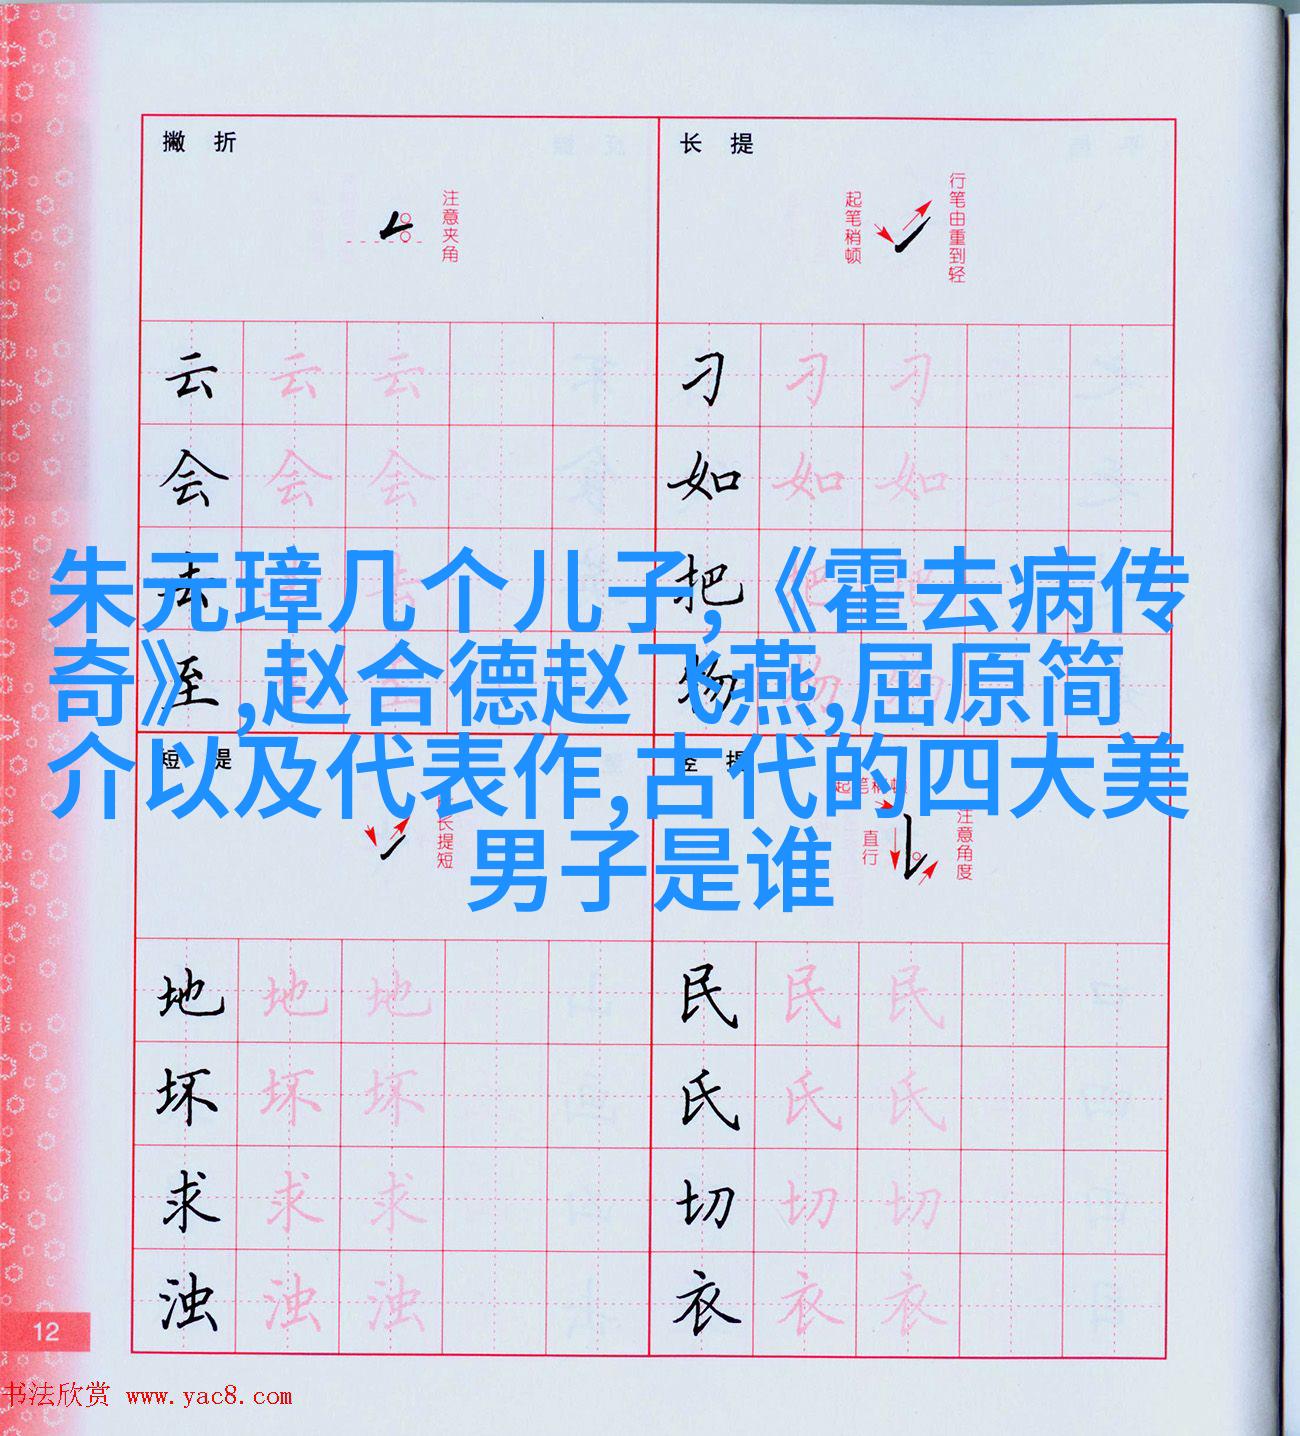 撇 折
注意夹角
长 提
起笔稍顿
行笔由重到轻
云 云 云
刁 刁 刁
会 会 会
如 如 如
去 去
把 把
朱元璋几个儿子,《霍去病传
奇》,赵合德赵飞燕,屈原简
介以及代表作,古代的四大美
男子是谁
至
物 物 物
短 提
长提短
竖 提
起笔稍顿
直行
注意角度
地 地 地
民 民 民
坏 坏 坏
氏 氏 氏
求 求 求
切 切 切
浊 浊 浊
衣 衣 衣
12
书法欣赏 www.yac8.com